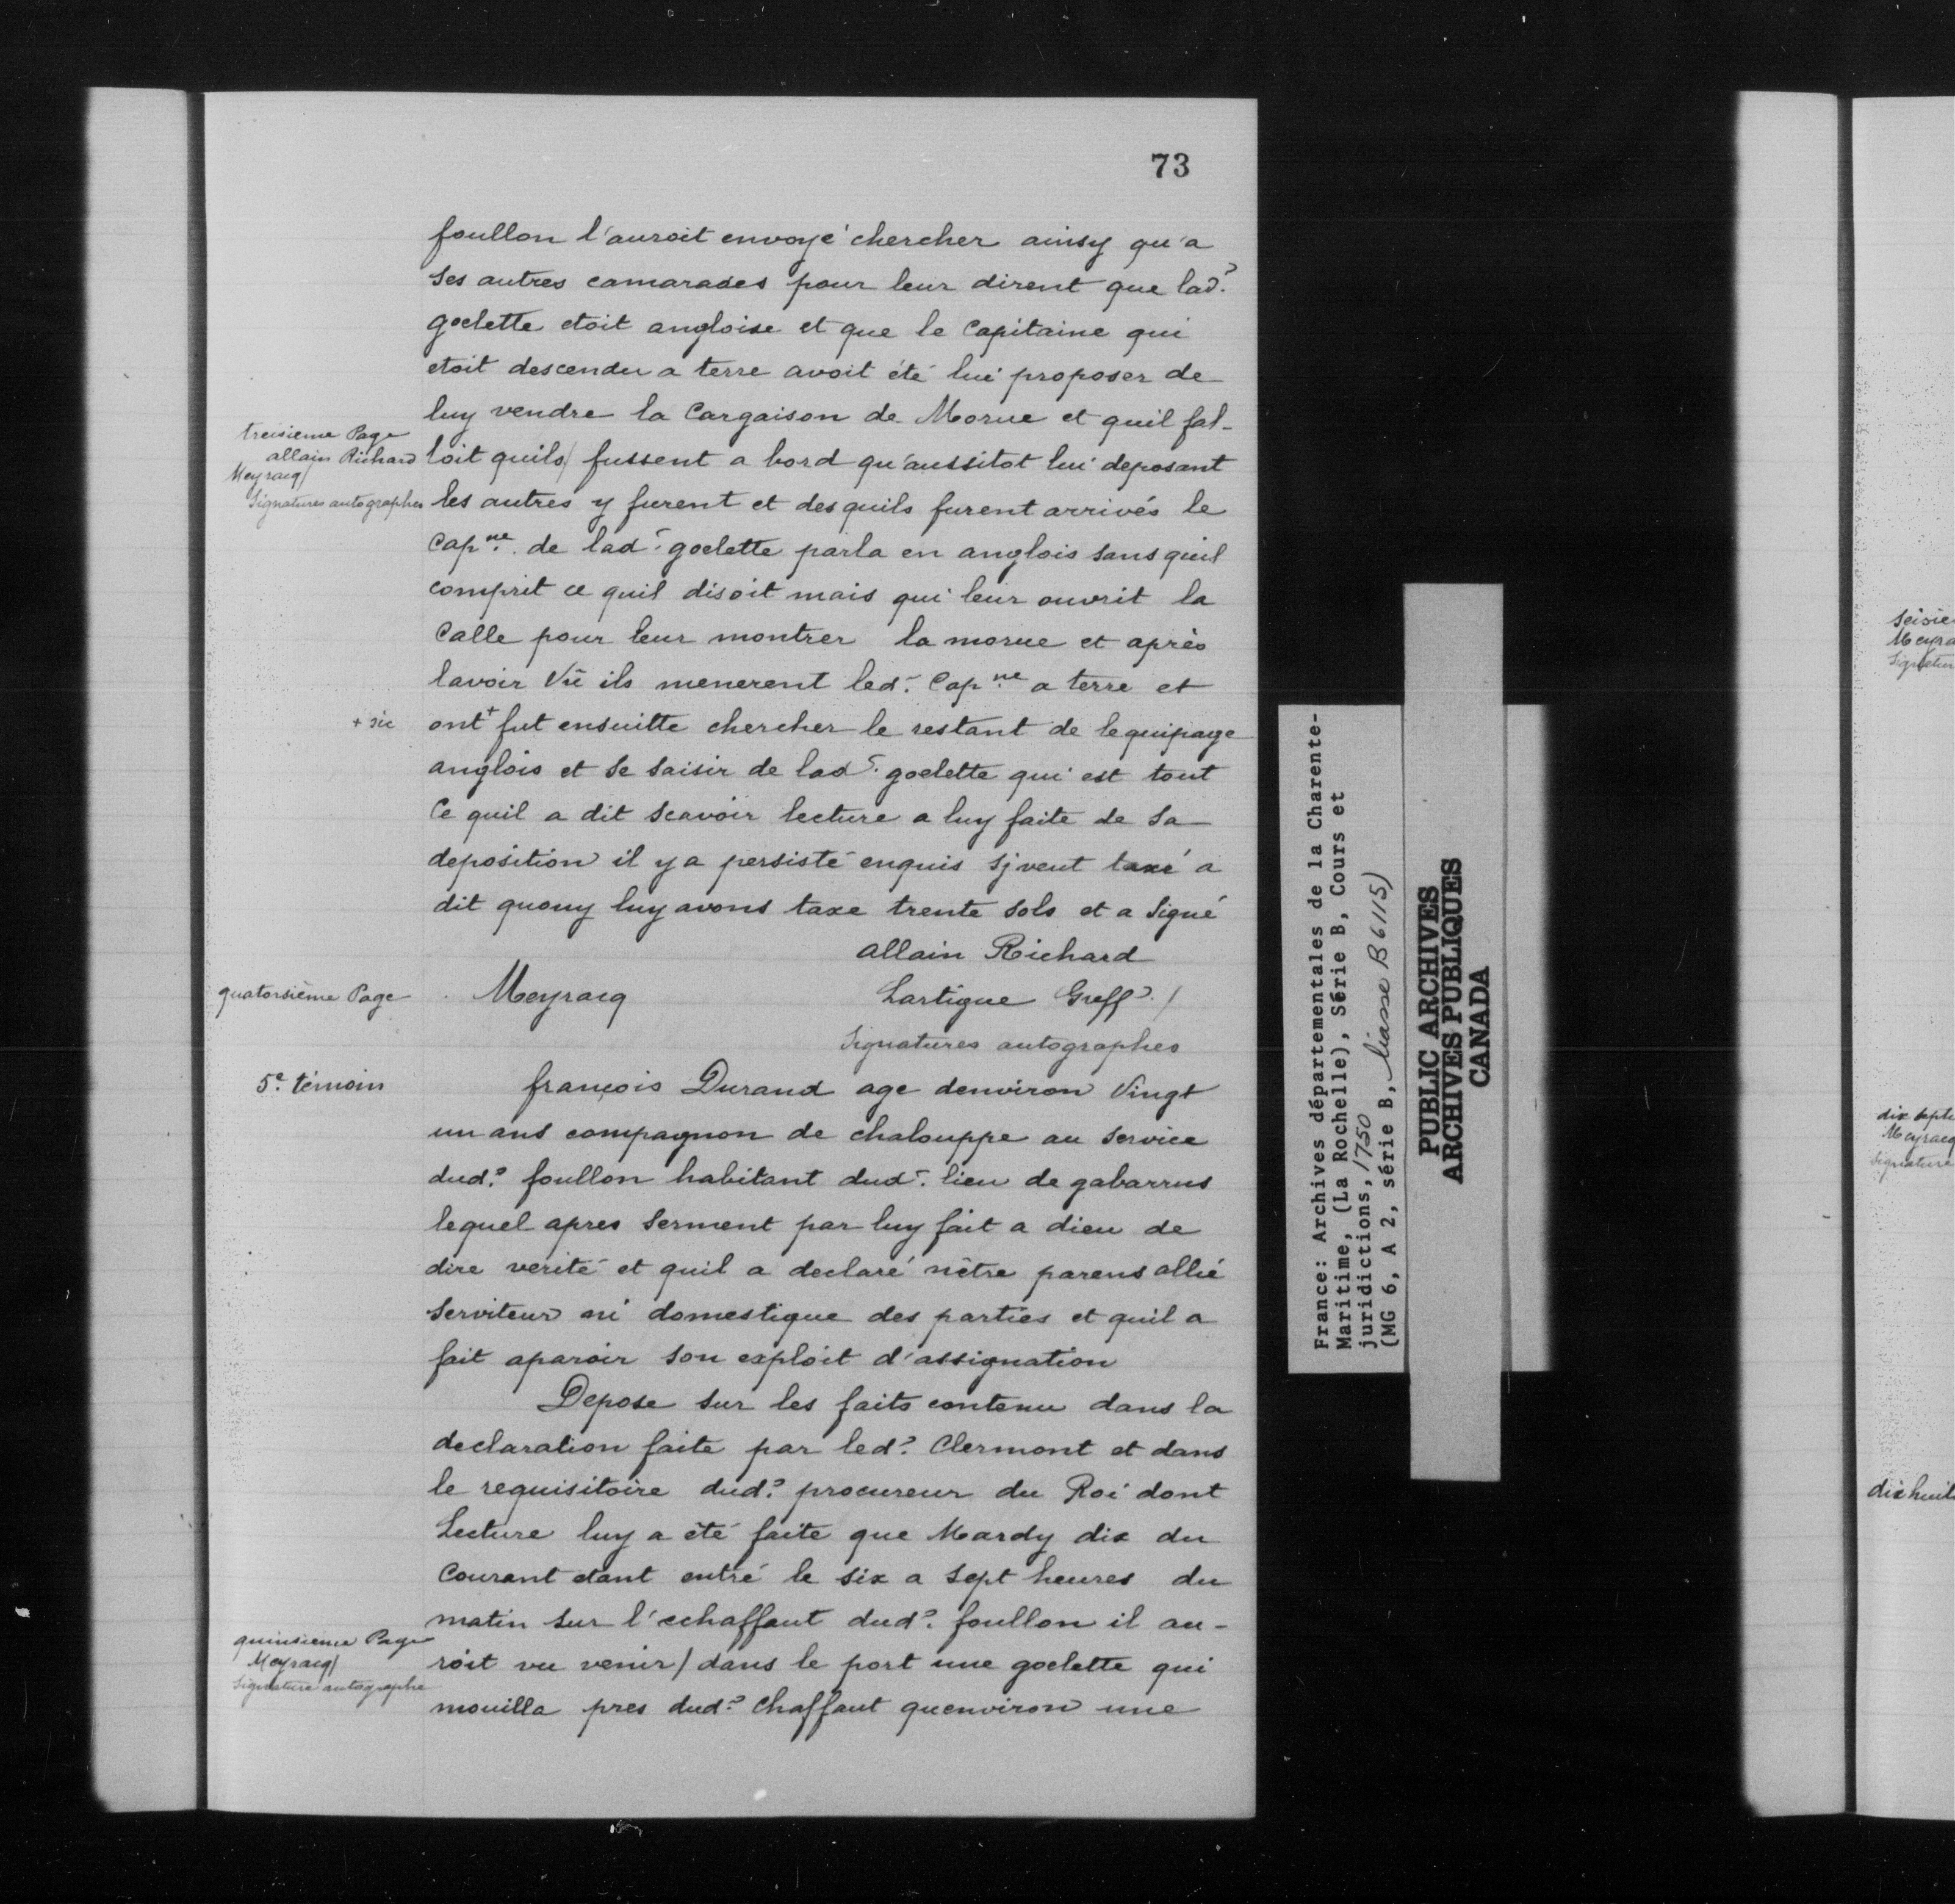 73
foullon l'auroit envoyé chercher ainsy qu'a
ses autres camarades pour leur dirent que lad.?
goelette etoit angloise et que le Capitaine qui
etoit descendu a terre avoit été lui proposer de
luy vendre la Cargaison de Morue et quil fal-
treisieme Page
allain Richard
Meyracq/
Signatures autographes
loit quils/ fussent a bord qu'aussitot lui deposant
les autres y furent et des quils furent arrivés le
Cap.ne de lad.? goelette parla en anglois sans quil
comprit ce quil disoit mais qui leur ouvrit la
Calle pour leur montrer la morue et après
lavoir Vû ils menerent led.? Cap.ne a terre et
+ sic
ont+ fut ensuitte chercher le restant de lequipage
anglois et se saisir de lad.? goelette qui est tout
Ce quil a dit scavoir lecture a luy faite de sa
deposition il y a persisté enquis sj veut taxé a
dit quouy luy avons taxe trente sols et a signé
allain Richard
quatorsième Page
Meyracq
Lartigue Greff.? /
Signatures autographes
5.e témoin
françois Durand age denviron Vingt
un ans compagnon de chalouppe au service
dud.? foullon habitant dud.? lieu de gabarrus
lequel apres serment par luy fait a dieu de
dire verité et quil a declaré nêtre parens allié
serviteur ni domestique des parties et quil a
fait aparoir son exploit d'assignation
Depose sur les faits contenu dans la
declaration faite par led.? Clermont et dans
le requisitoire dud.? procureur du Roi dont
Lecture luy a été faite que Mardy dix du
Courant etant entré le six a sept heures du
matin sur l'echaffaut dud.? foullon il au-
quinsieme Page
Meyracq/
Signature autographe
roit vu venir/ dans le port une goelette qui
mouilla pres dud.? Chaffaut quenviron une
France: Archives départementales de la Charente-
Maritime, (La Rochelle), Série B, Cours et
juridictions, 1750
(MG 6, A 2, série B, liasse B 6115)
PUBLIC ARCHIVES
ARCHIVES PUBLIQUES
CANADA
seisie
Meyra
Signatur
dix septi
Meyracq
Signature
dix huit